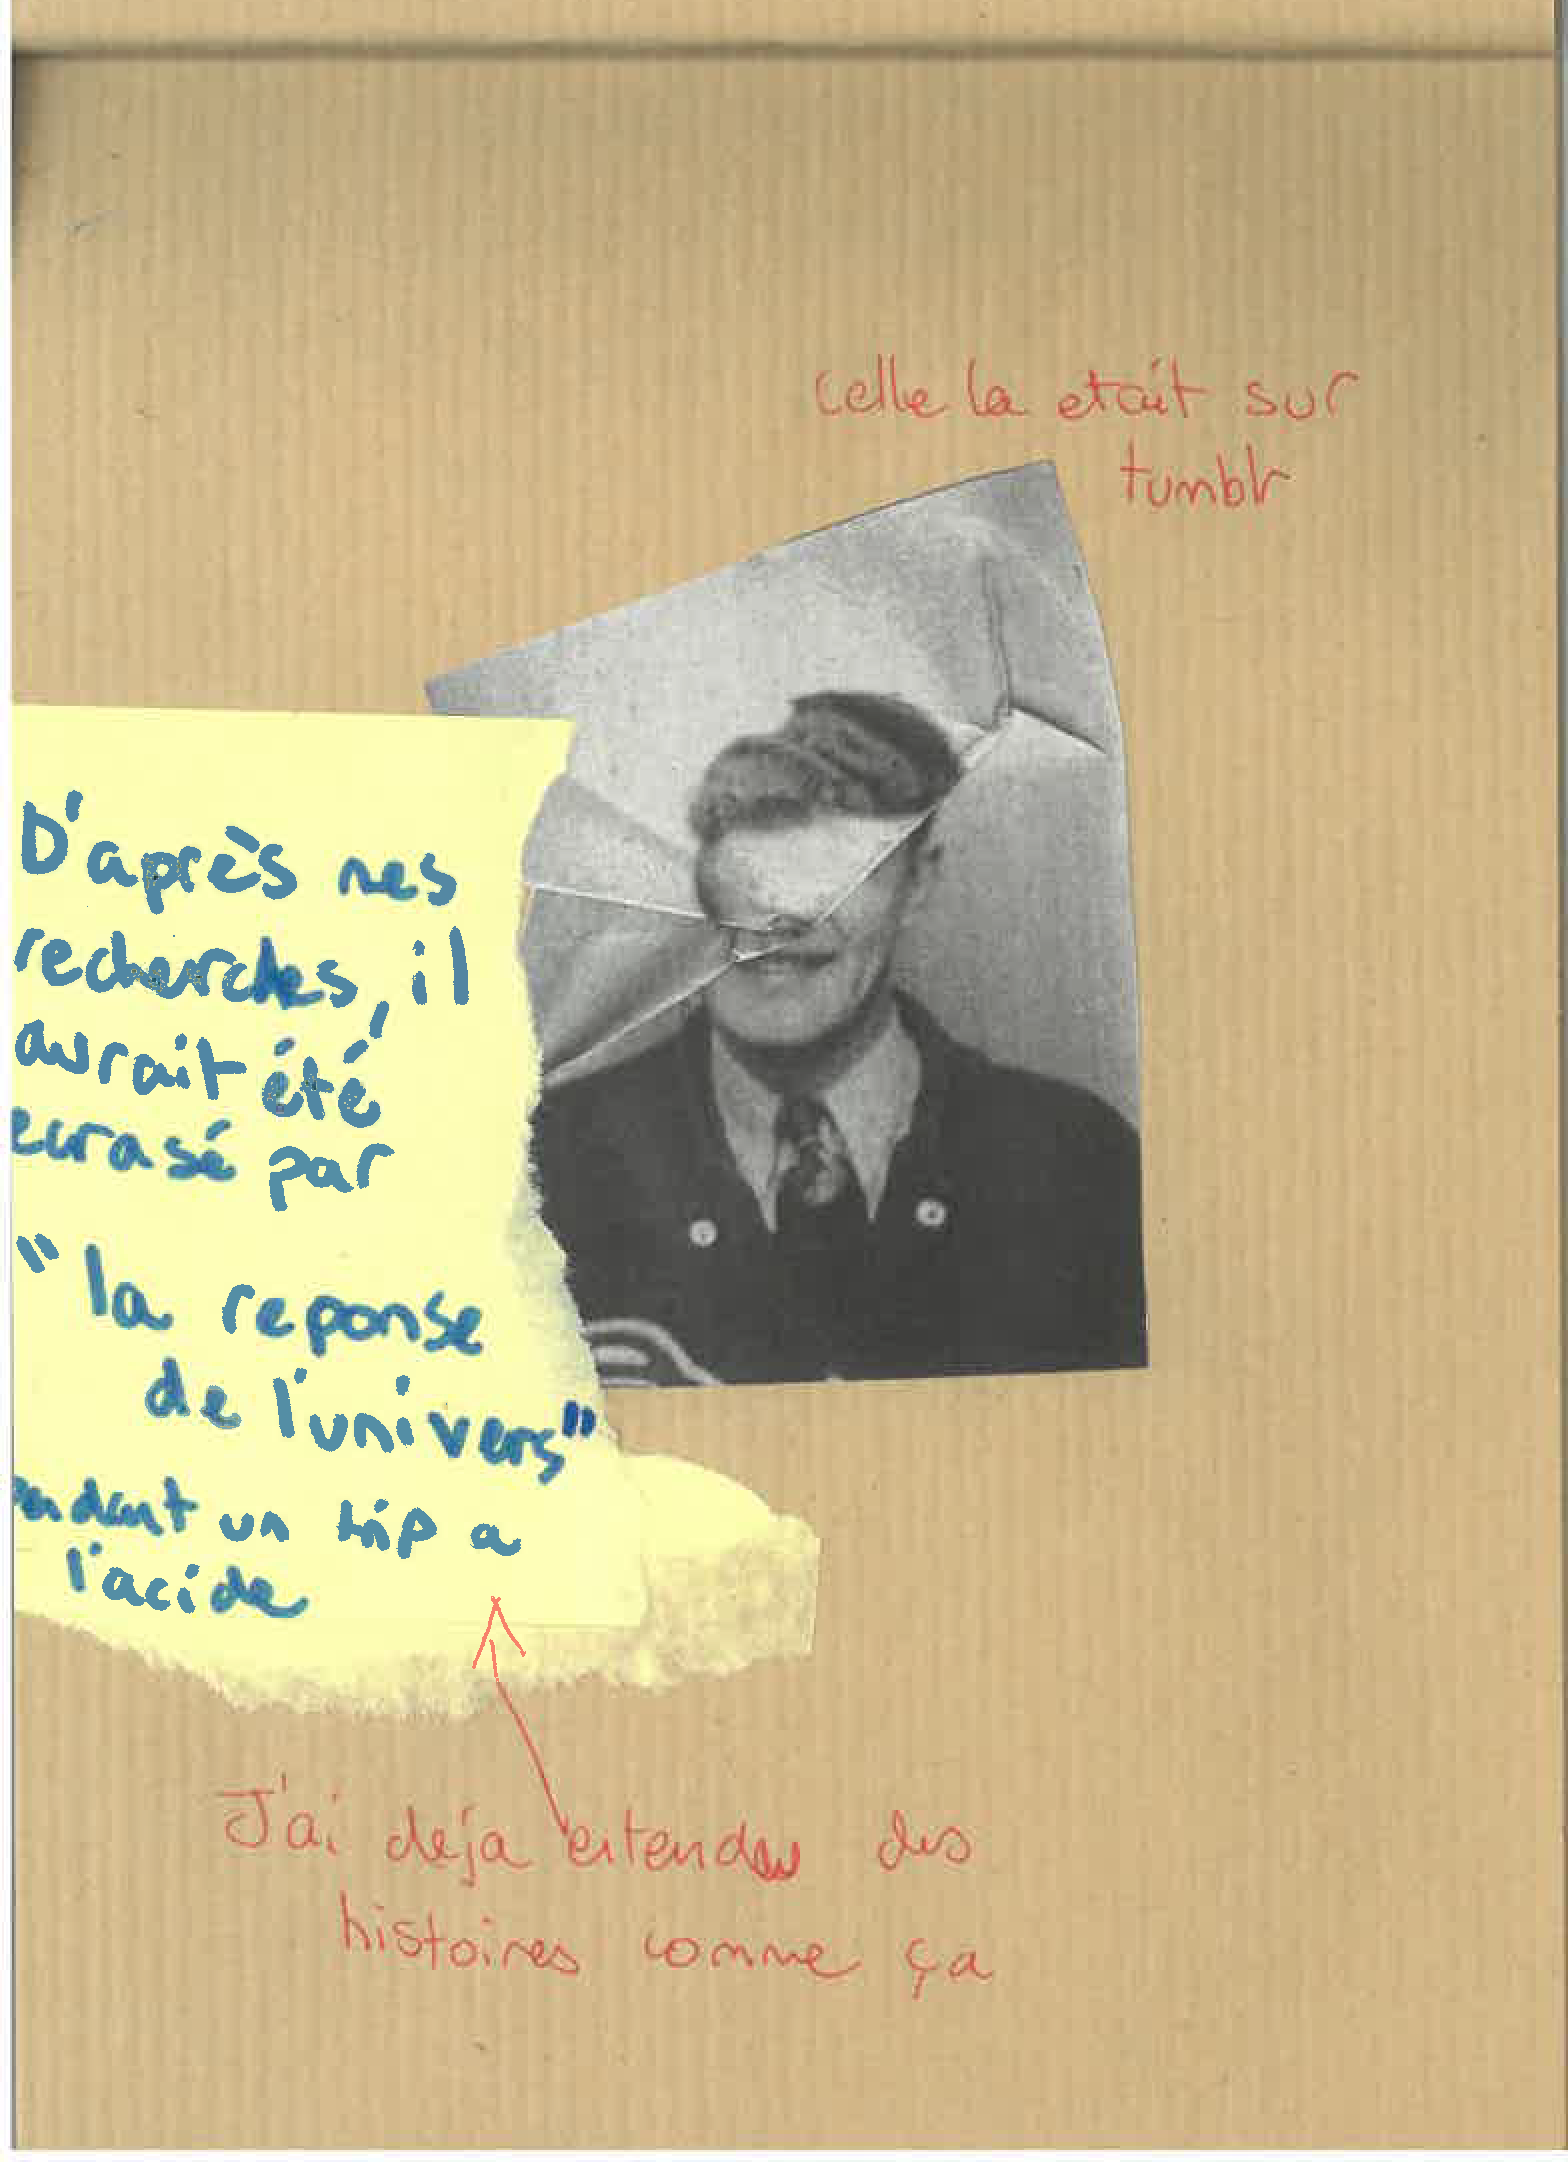 celle la etait sur
tumblr
D'après mes
recherches, il
aurait été
ecrasé par
"la reponse
de l'univers"
pendant un trip a
l'acide
J'ai deja entendu des
histoires comme ça